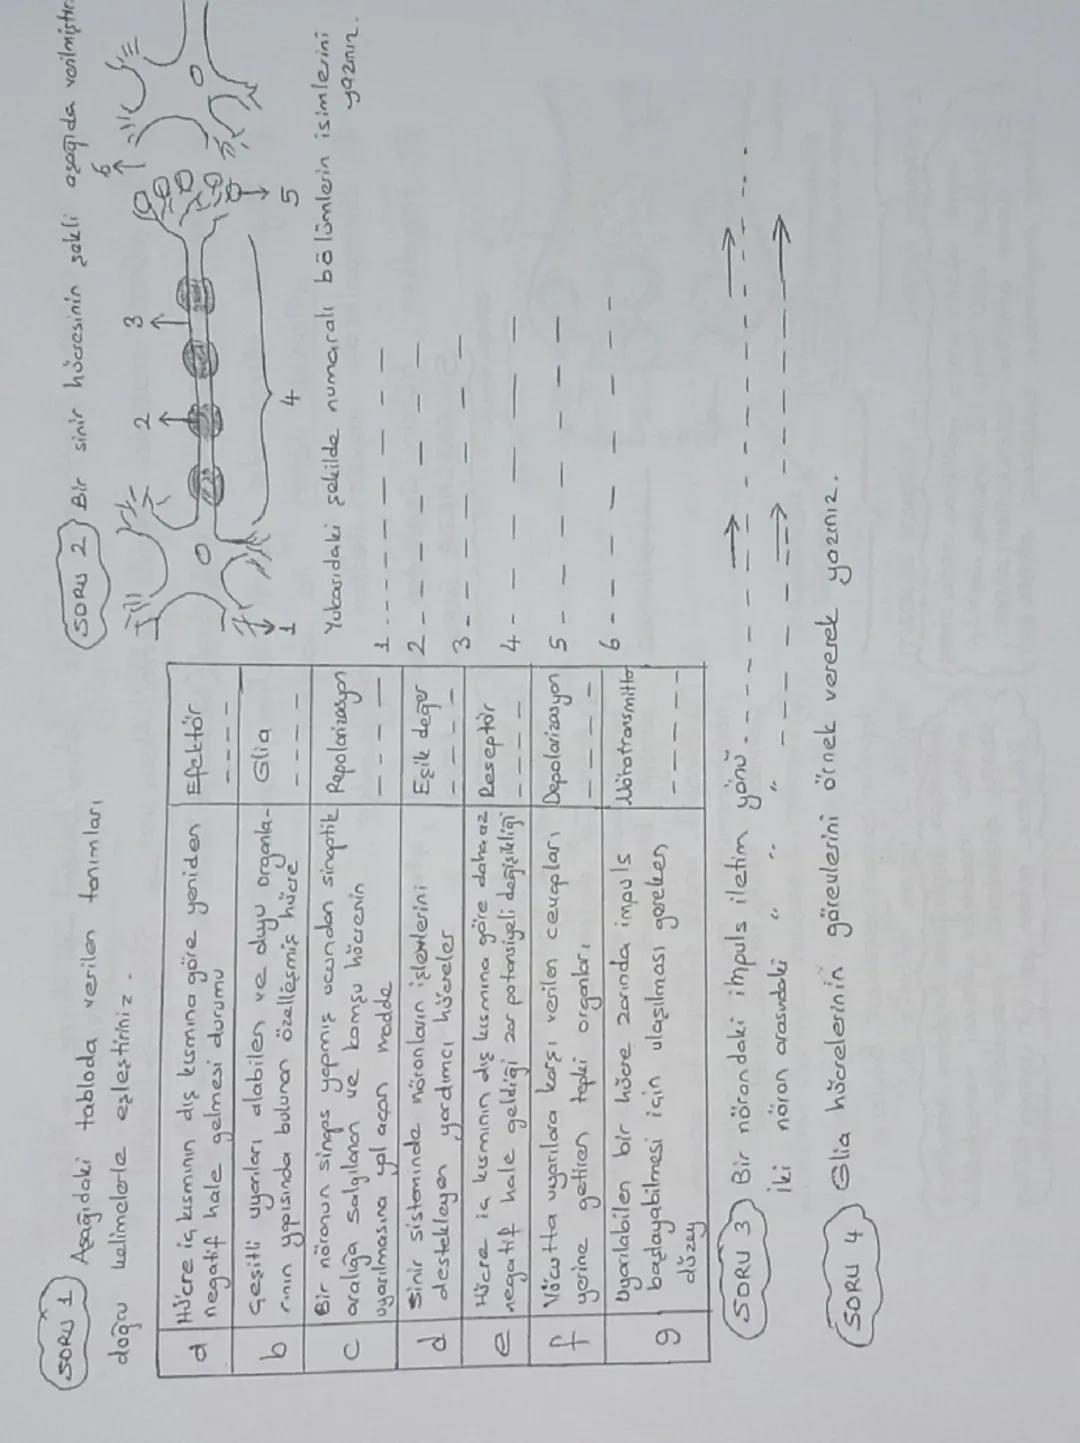 SORU 1) Aşağıdaki tabloda verilen tanımları
doğru kelimelerle eşleştiriniz.
a Hücre iç kısmının dış kısmına göre yeniden
negatif hale gelmesi durumu
Efektör
b Çeşitli uyarıları alabilen ve duyu organla-
rının yapısında bulunan özelleşmiş hücre
Glia
c Bir nöronun sinaps yapmış ucundan sinaptik
aralığa salgılanan ve komşu hücrenin
uyarılmasına yol açan madde
Repolarizasyon
d Sinir sisteminde nöronların işlevlerini
destekleyen yardımcı hücreler
Eşik değer
e Hücre iç kısmının dış kısmına göre daha az
negatif hale geldiği zar potansiyeli değişikliği
Reseptör
f Vücutta uyarılara karşı verilen cevapları
yerine getiren tepki organları
Depolarizasyon
g Uyarılabilen bir hücre zarında impuls
başlayabilmesi için ulaşılması gereken
düzey
Nörotransmitter
SORU 2) Bir sinir hücresinin şekli aşağıda verilmiştir.
1
2
3
4
5
6
Yukarıdaki şekilde numaralı bölümlerin isimlerini
yazınız.
1 - - - - - - - -
2 - - - - - - - -
3 - - - - - - - -
4 - - - - - - -
5 - - - - - - -
6 - - - - - - - -
SORU 3) Bir nörondaki impuls iletim yönü - - - - → - - - - - - → - - -
İki nöron arasındaki " " " - - - - → - - - - - - →
SORU 4) Glia hücrelerinin görevlerini örnek vererek yazınız.